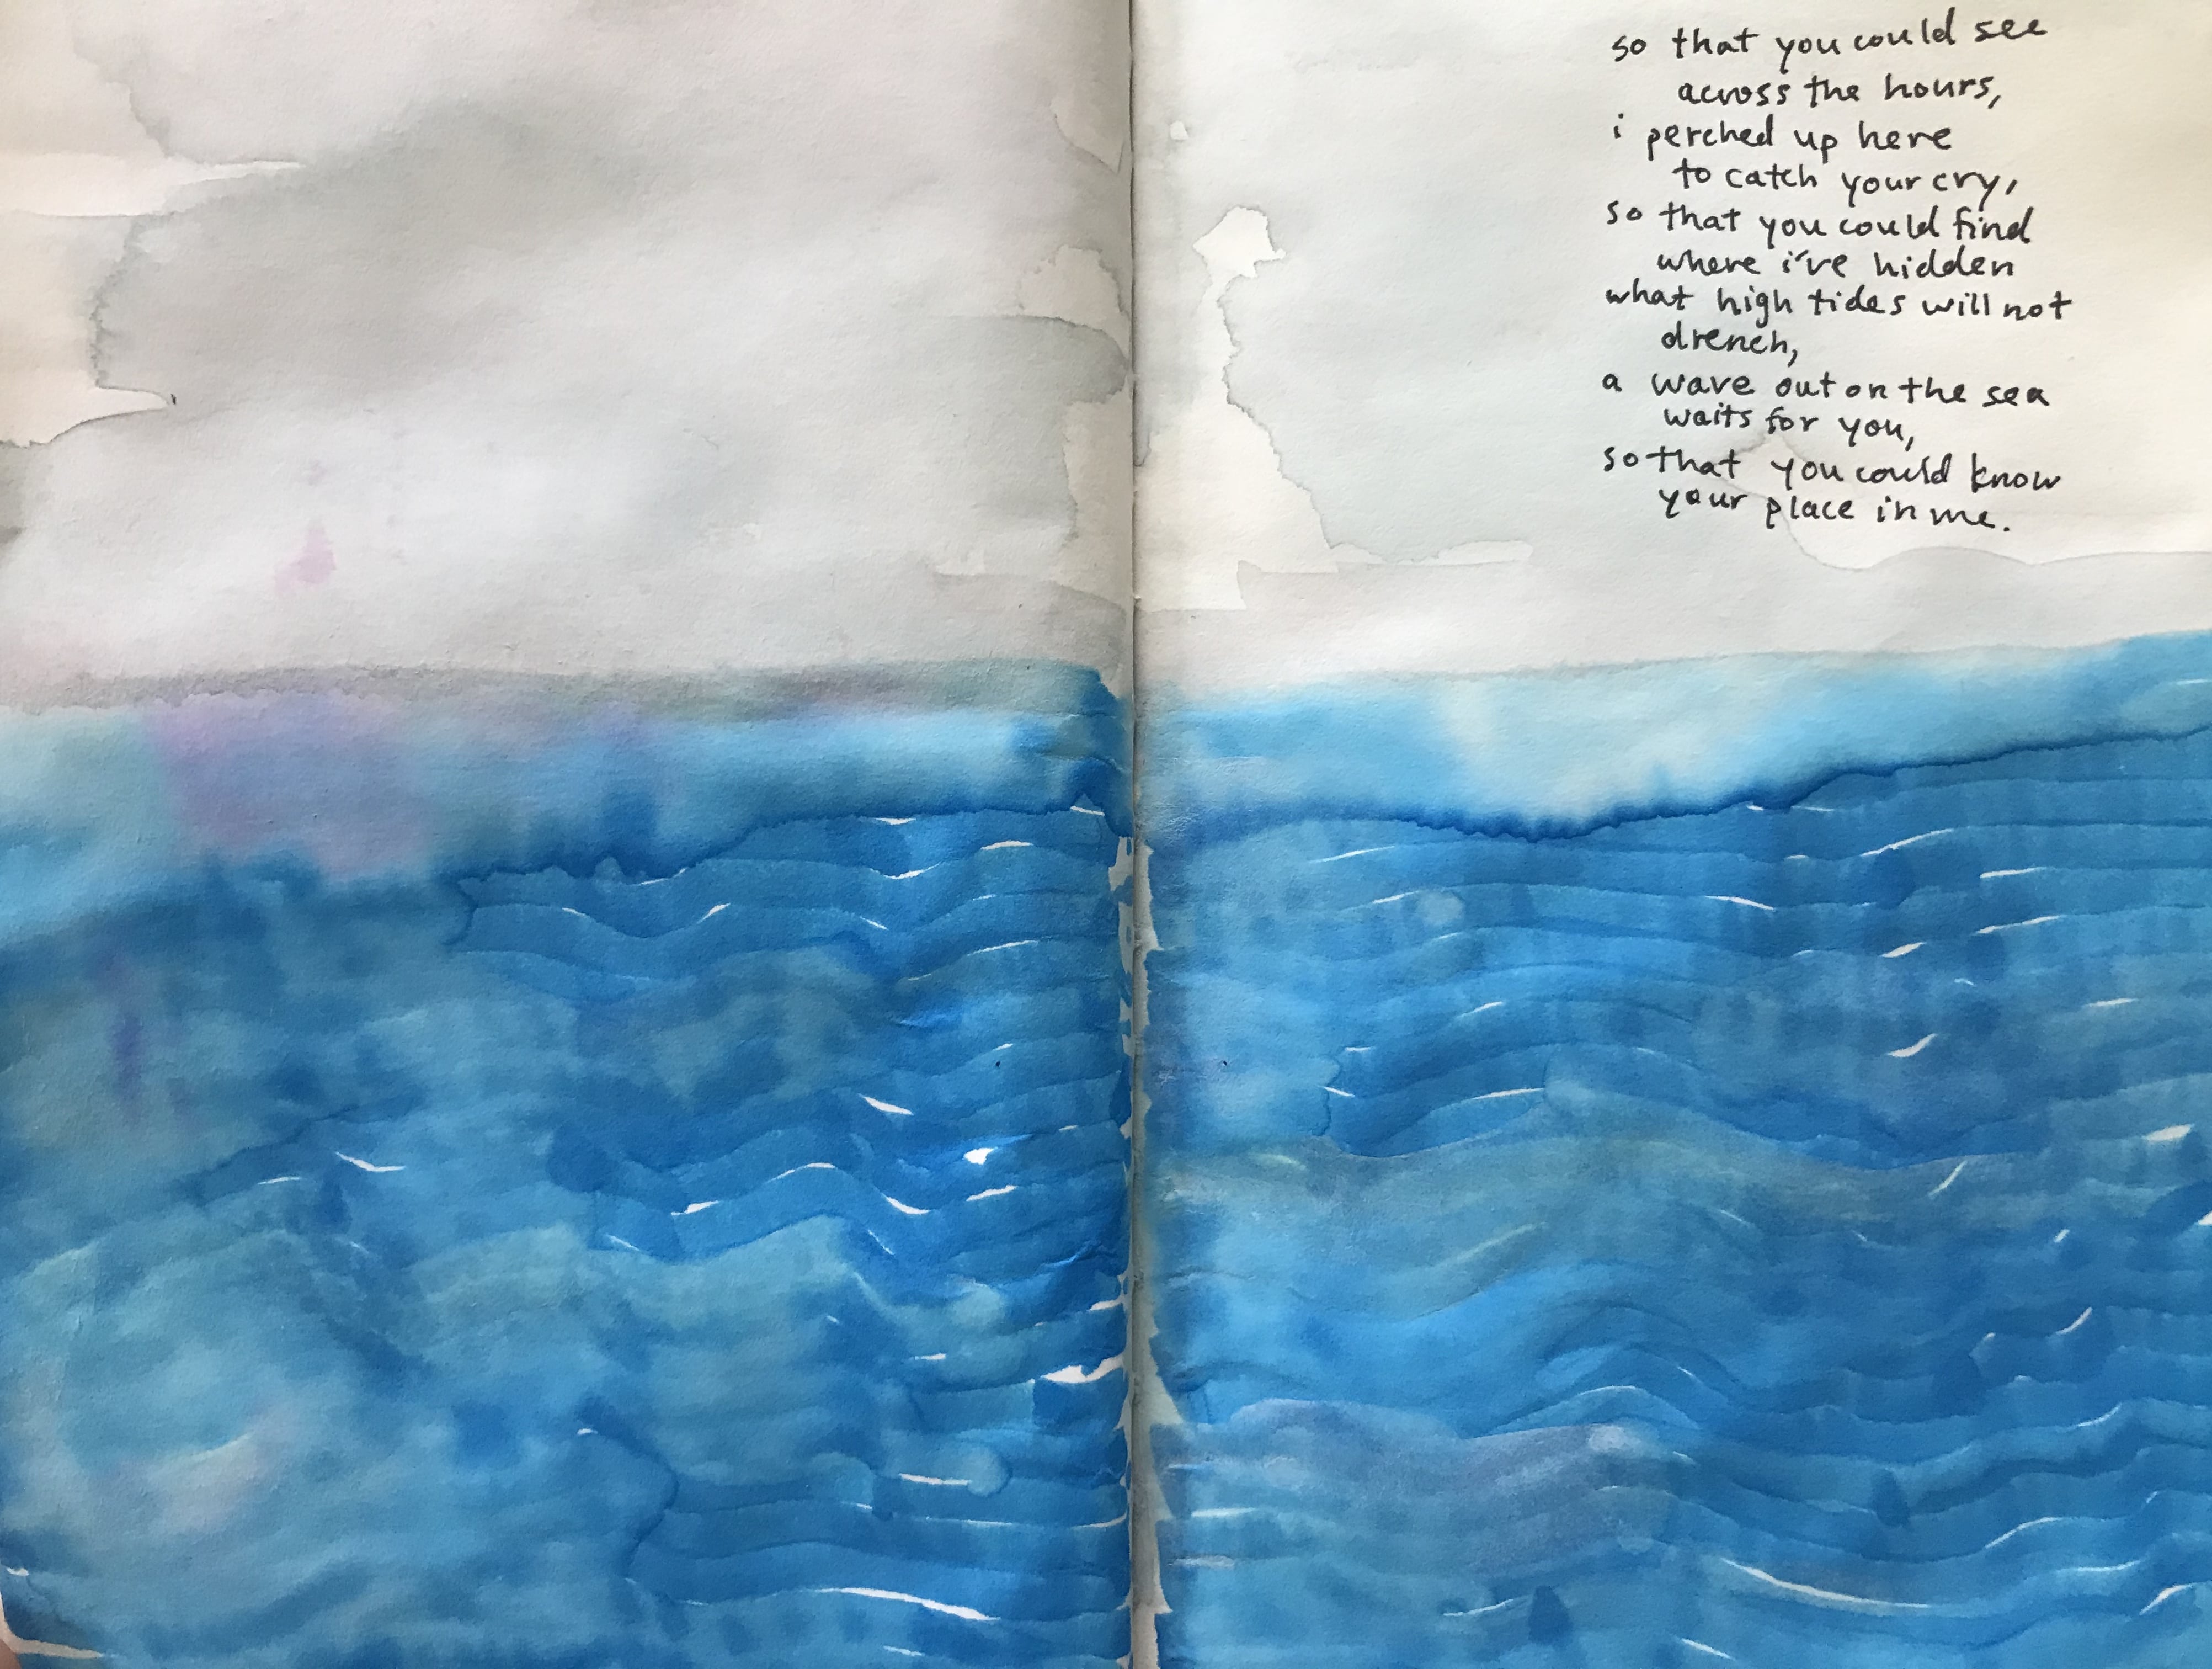 so that you could see
across the hours,
i perched up here
to catch your cry,
so that you could find
where i've hidden
what high tides will not
drench,
a wave out on the sea
waits for you,
so that you could know
your place in me.